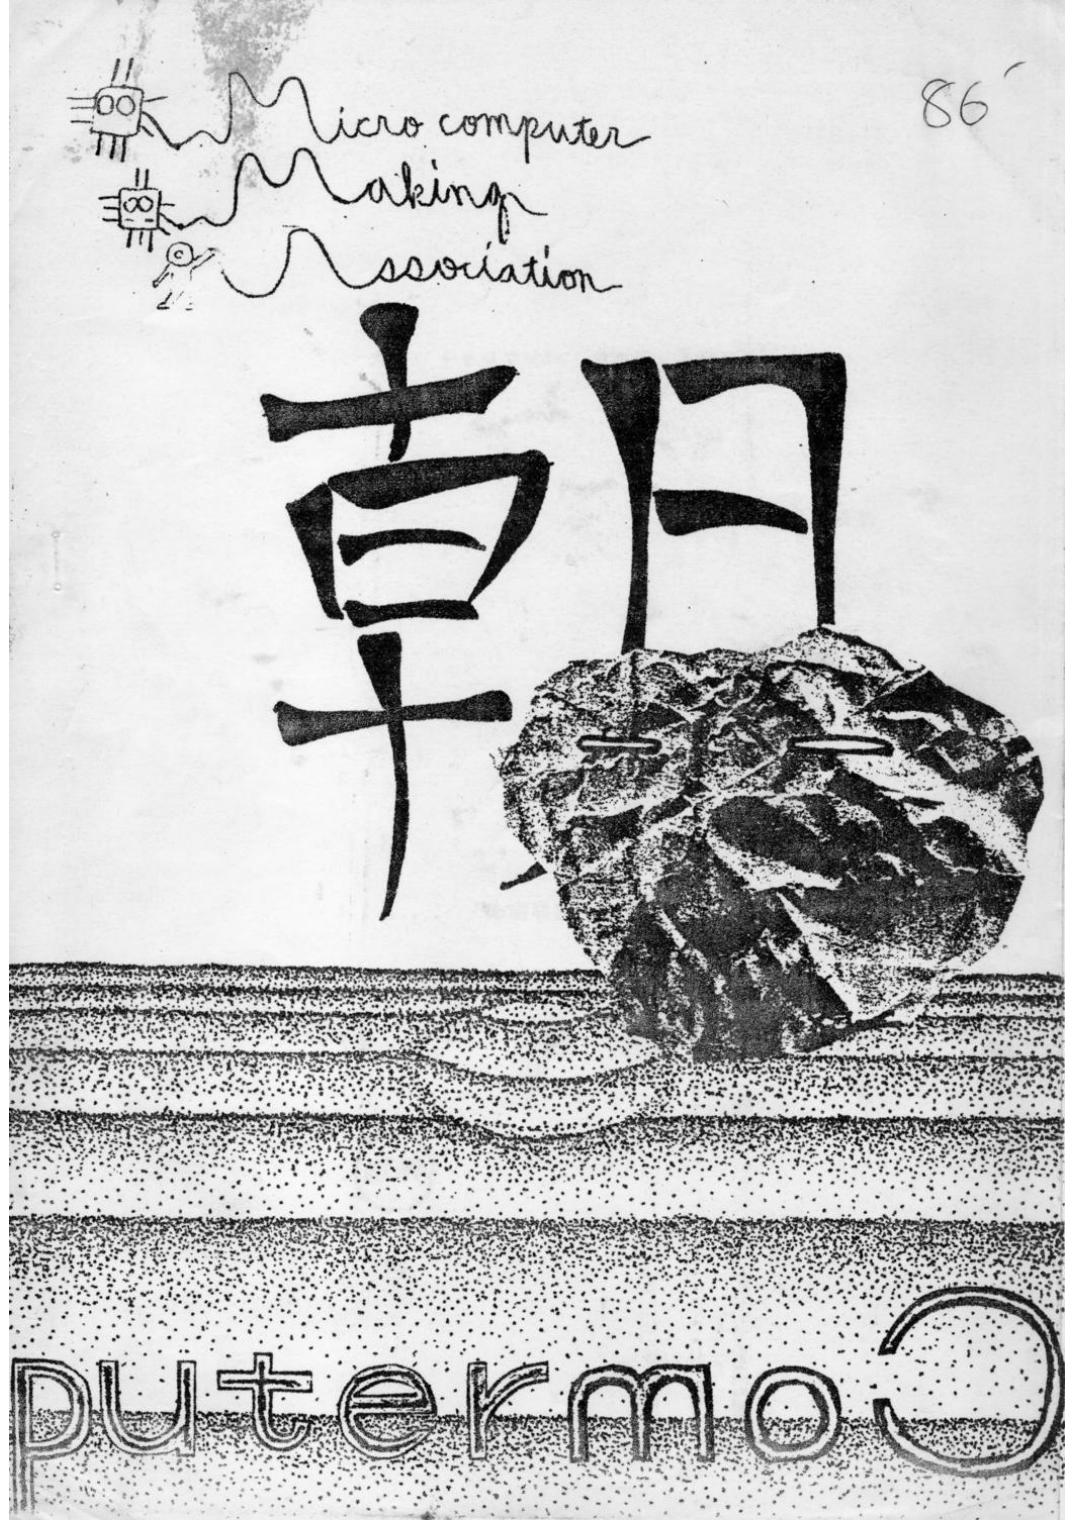 86'
Micro computer
Making
Association
朝
putermoƆ